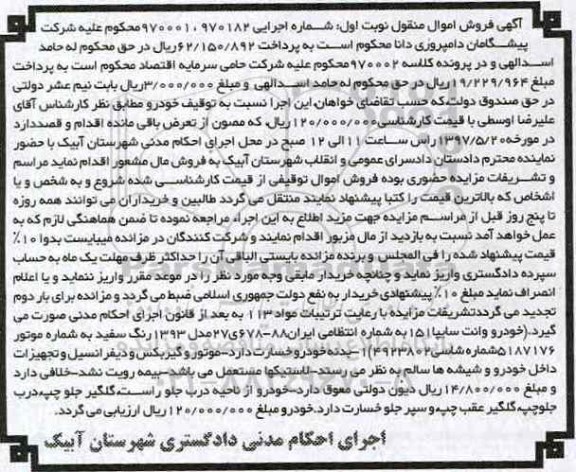 آگهی فروش اموال منقول نوبت اول: شماره اجرایی ۹۷۰۱۸۲ ، ۹۷۰۰۰۱محکوم علیه شرکت
پیشگامان دامپروری دانا محکوم است به پرداخت ۶۲/۱۵۰/۸۹۲ریال در حق محکوم له حامد
اسدالهی و در پرونده کلاسه ۹۷۰۰۰۲محکوم علیه شرکت حامی سرمایه اقتصاد محکوم است به پرداخت
مبلغ ۱۹/۲۲۹/۹۶۴ریال در حق محکوم له حامد اسدالهی و مبلغ ۳/۰۰۰/۰۰۰ریال بابت نیم عشر دولتی
در حق صندوق دولت،که حسب تقاضای خواهان،این اجرا نسبت به توقیف خودرو مطابق نظر کارشناس آقای
علیرضا اوسطی با قیمت کارشناسی۱۲۰/۰۰۰/۰۰۰ریال، که مصون از تعرض باقی مانده اقدام و قصددارد
در مورخه۱۳۹۷/۵/۲۰راس ساعت ۱۱الی ۱۲ صبح در محل اجرای احکام مدنی شهرستان آبیک با حضور
نماینده محترم دادستان دادسرای عمومی و انقلاب شهرستان آبیک به فروش مال مشعور اقدام نماید مراسم
و تشریفات مزایده حضوری بوده فروش اموال توقیفی از قیمت کارشناسی شده شروع و به شخص و یا
اشخاص که بالاترین قیمت را کتبا پیشنهاد نمایند منتقل می گردد طالبین و خریداران می توانند همه روزه
تا پنج روز قبل از مراسم مزایده جهت مزید اطلاع به این اجراء مراجعه نموده تا ضمن هماهنگی لازم که به
عمل خواهد آمد نسبت به بازدید از مال مزبور اقدام نمایند و شرکت کنندگان در مزانده میبایست بدوا ۱۰٪
قیمت پیشنهاد شده را فی المجلس و برنده مزانده بایستی الباقی آن را حداکثر ظرف مهلت یک ماه به حساب
سپرده دادگستری واریز نماید و چنانچه خریدار مابقی وجه مورد نظر را در موعد مقرر واریز ننماید و یا اعلام
انصراف نماید مبلغ ۱۰٪ پیشنهادی خریدار به نفع دولت جمهوری اسلامی ضبط می گردد و مزانده برای بار دوم
تجدید می گرددتشریفات مزایده با رعایت ترتیبات مواد۱۱۳ به بعد از قانون اجرای احکام مدنی صورت می
گیرد.(خودرو وانت سایپا۱۵۱به شماره انتظامی ایران۸۸-۲۷ه۶۷۸مدل ۱۳۹۳رنگ سفید به شماره موتور
۵۱۸۷۱۷۶شماره شاسی۴۹۲۳۸۰۲)۱-بدنه خودرو خسارت دارد-موتور و گیربکس و دیفرانسیل و تجهیزات
داخل خودرو و شیشه ها سالم به نظر می رسند-لاستیکها مستعمل می باشد-بیمه رویت نشد-خلافی دارد
و مبلغ ۱۴/۸۰۰/۰۰۰ ریال دیون دولتی معوق دارد-خودرو از ناحیه درب جلو راست،گلگیر جلو چپ،درب
جلوچپ،گلگیر عقب چپ و سپر جلو خسارت دارد.خودرو مبلغ ۱۲۰/۰۰۰/۰۰۰ ریال ارزیابی می گردد.
اجرای احکام مدنی دادگستری شهرستان آبیک